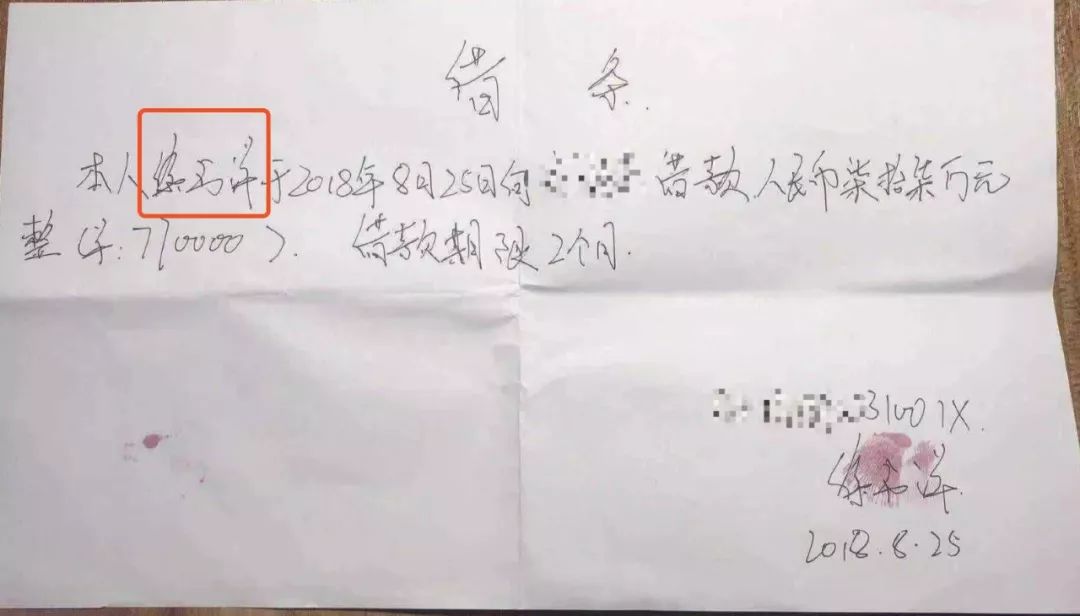 借 条.
本人徐于2018年8月25日向 借款人民币柒拾柒万元
整(字:770000). 借款期限2个月.
31001X.
徐
2018.8.25